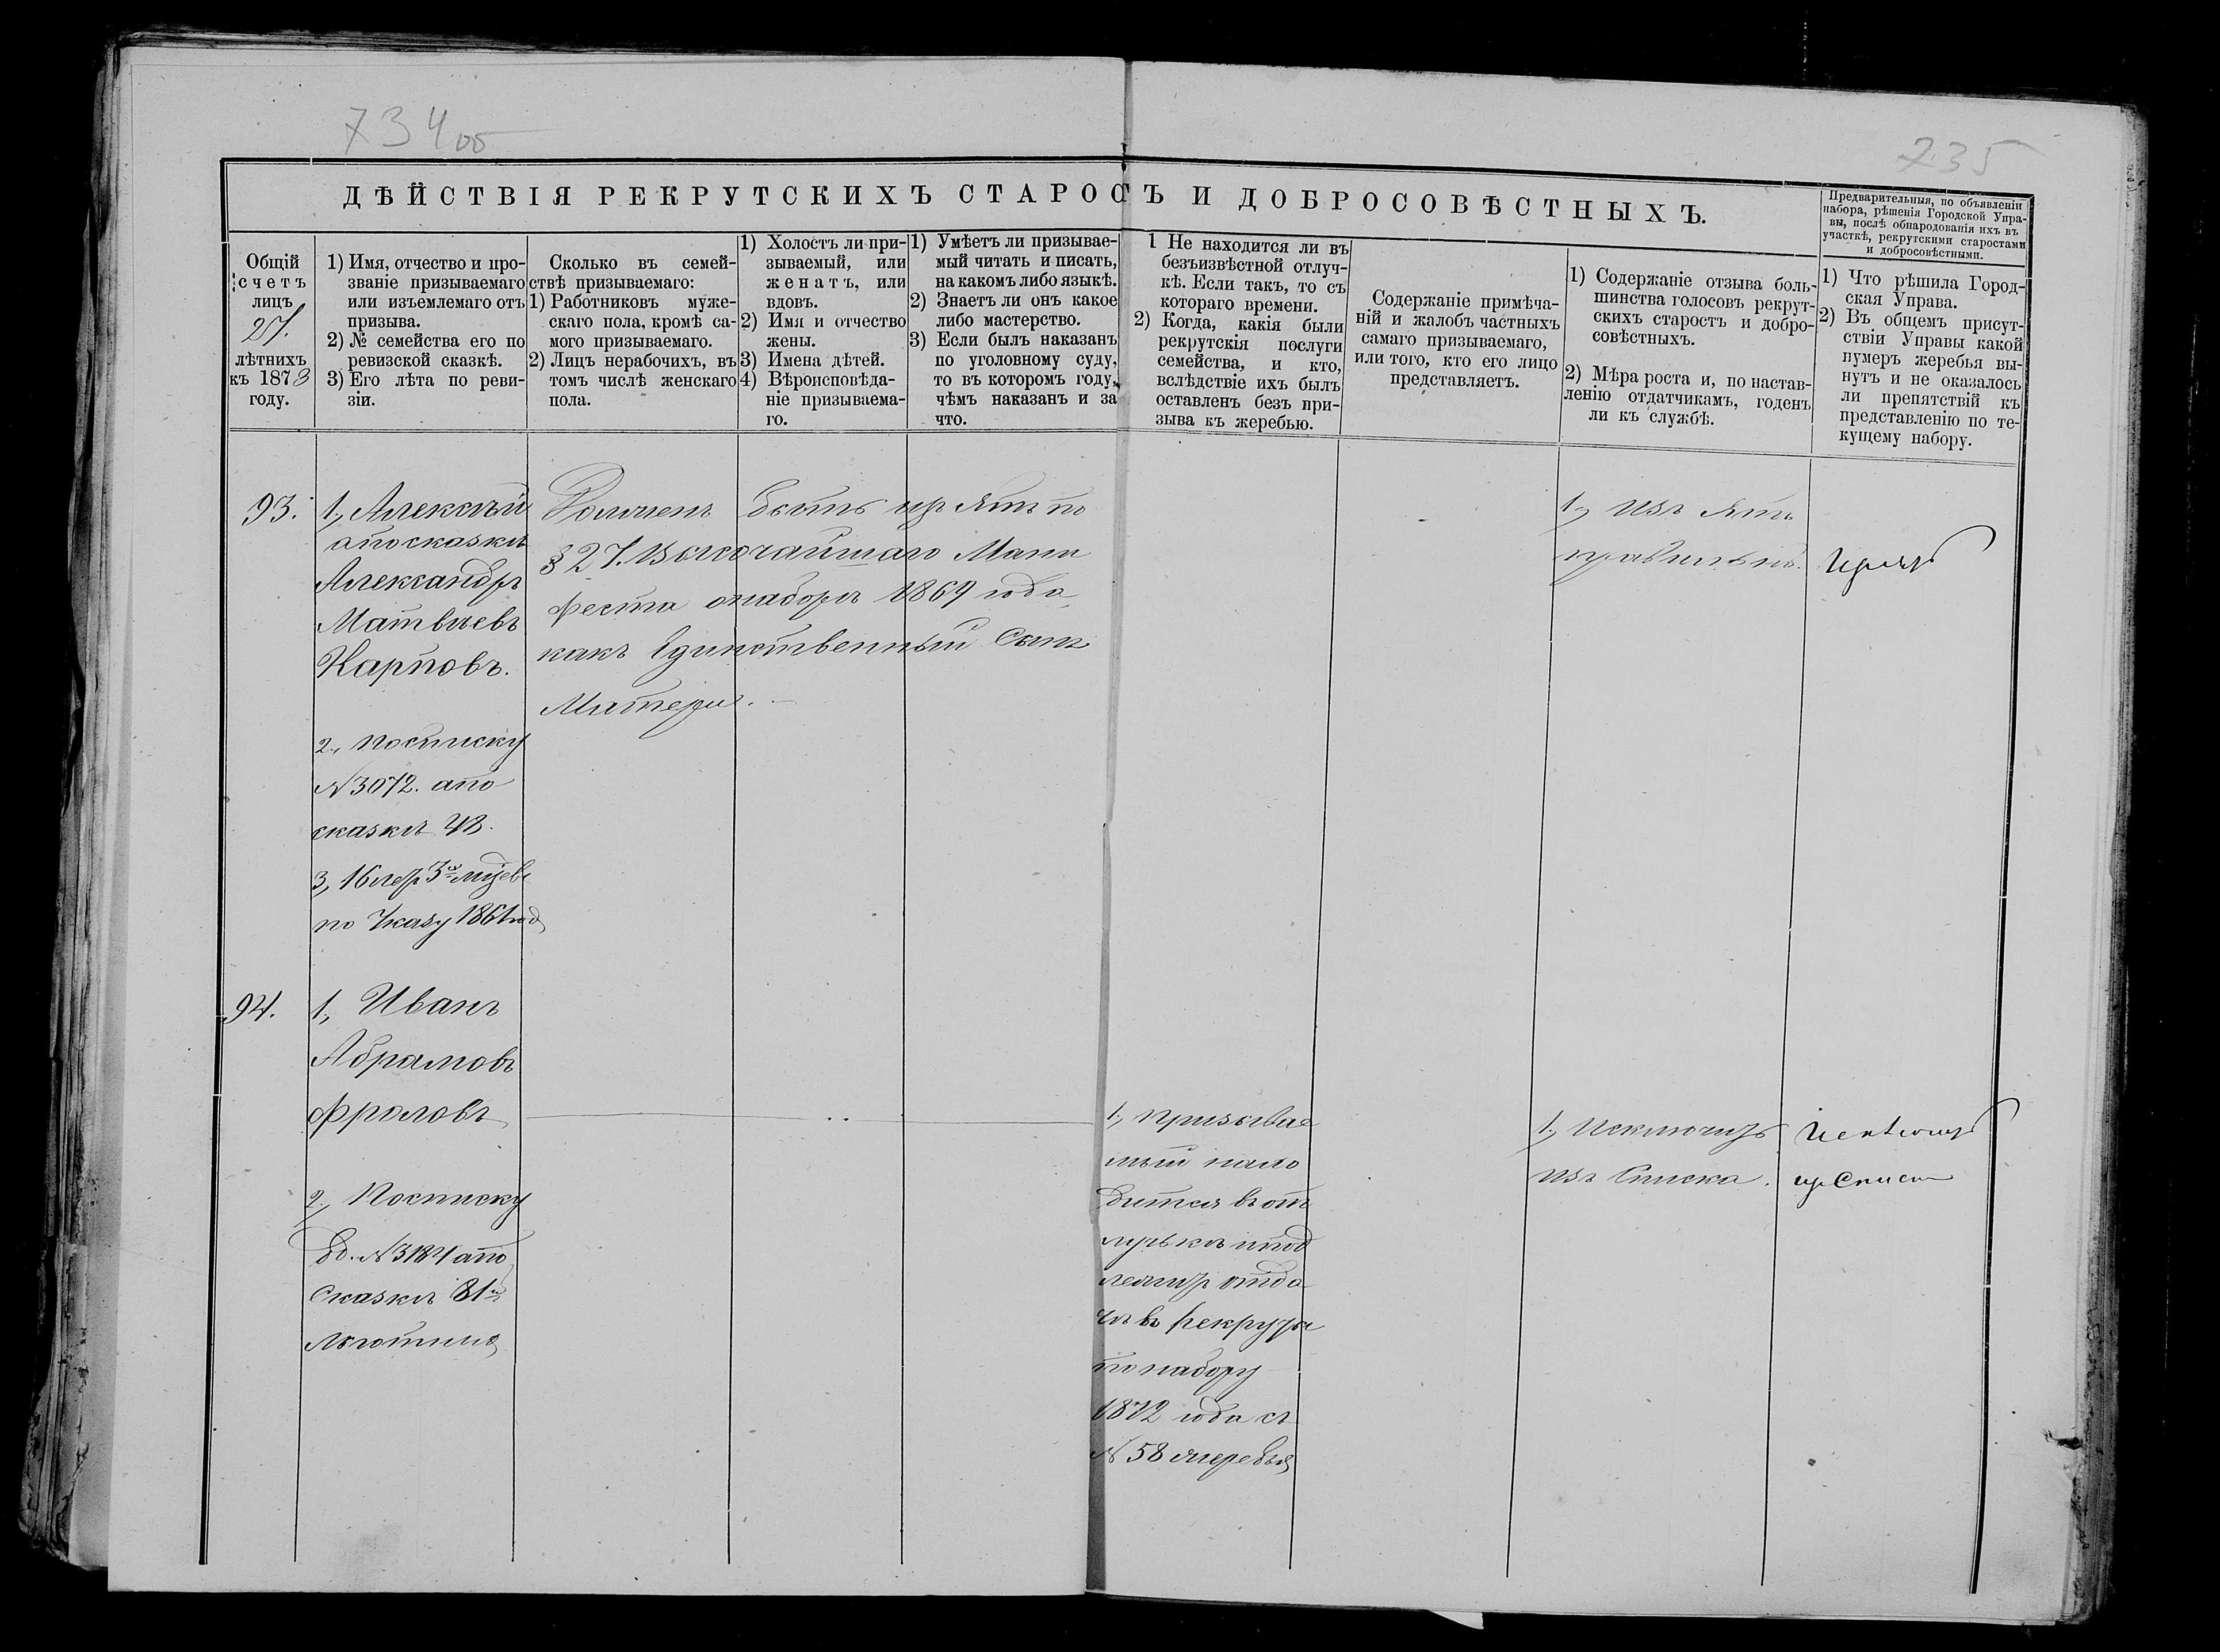 734об
235
ДѢЙСТВІЯ РЕКРУТСКИХЪ СТАРОСТЪ И ДОБРОСОВѢСТНЫХЪ.
Предварительныя, по объявленіи
набора, рѣшенія Городской Упра-
вы, послѣ обнародованія ихъ въ
участкѣ, рекрутскими старостами
и добросовѣстными.
Общій
счетъ
лицъ
27.
лѣтнихъ
къ 1873
году.
1) Имя, отчество и про-
званіе призываемаго
или изъемлемаго отъ
призыва.
2) № семейства его по
ревизской сказкѣ.
3) Его лѣта по реви-
зіи.
Сколько въ семей-
ствѣ призываемаго:
1) Работниковъ муже-
скаго пола, кромѣ са-
мого призываемаго.
2) Лицъ нерабочихъ, въ
томъ числѣ женскаго
пола.
1) Холостъ ли при-
зываемый, или
женатъ, или
вдовъ.
2) Имя и отчество
жены.
3) Имена дѣтей.
4) Вѣроисповѣда-
ніе призываема-
го.
1) Умѣетъ ли призывае-
мый читать и писать,
на какомъ либо языкѣ.
2) Знаетъ ли онъ какое
либо мастерство.
3) Если былъ наказанъ
по уголовному суду,
то въ которомъ году,
чѣмъ наказанъ и за
что.
1 Не находится ли въ
безъизвѣстной отлуч-
кѣ. Если такъ, то съ
котораго времени.
2) Когда, какія были
рекрутскія послуги
семейства, и кто,
вслѣдствіе ихъ былъ
оставленъ безъ при-
зыва къ жеребью.
Содержаніе примѣча-
ній и жалобъ частныхъ
самаго призываемаго,
или того, кто его лицо
представляетъ.
1) Содержаніе отзыва боль-
шинства голосовъ рекрут-
скихъ старостъ и добро-
совѣстныхъ.
2) Мѣра роста и, по настав-
ленію отдатчикамъ, годенъ
ли къ службѣ.
1) Что рѣшила Город-
ская Управа.
2) Въ общемъ присут-
ствіи Управы какой
нумеръ жеребья вы-
нутъ и не оказалось
ли препятствій къ
представленію по те-
кущему набору.
93.
1, Алексѣй
апосказкѣ
Александръ
Матвѣевъ
Карповъ.
2, Посписку
№ 3072. апо
сказкѣ 43.
по Указу 1861 год
Долженъ быть изъятъ по
§ 27. Высочайшаго Мани
феста онаборѣ 1869 года,
какъ Единственный Сынъ
Матери.
1, Изъятъ
правильно.
94.
1, Иванъ
Абрамовъ
Фроловъ
2, Посписку
№ 3184 апо
Сказкѣ 81й
1, Призывае
мый нахо
дится вотъ
лучькѣ ипод
лежитъ отда
чѣ въ рекруты
по набору
1872 года съ
№ 58 жеребья
1, Исключить
изъ Списка.